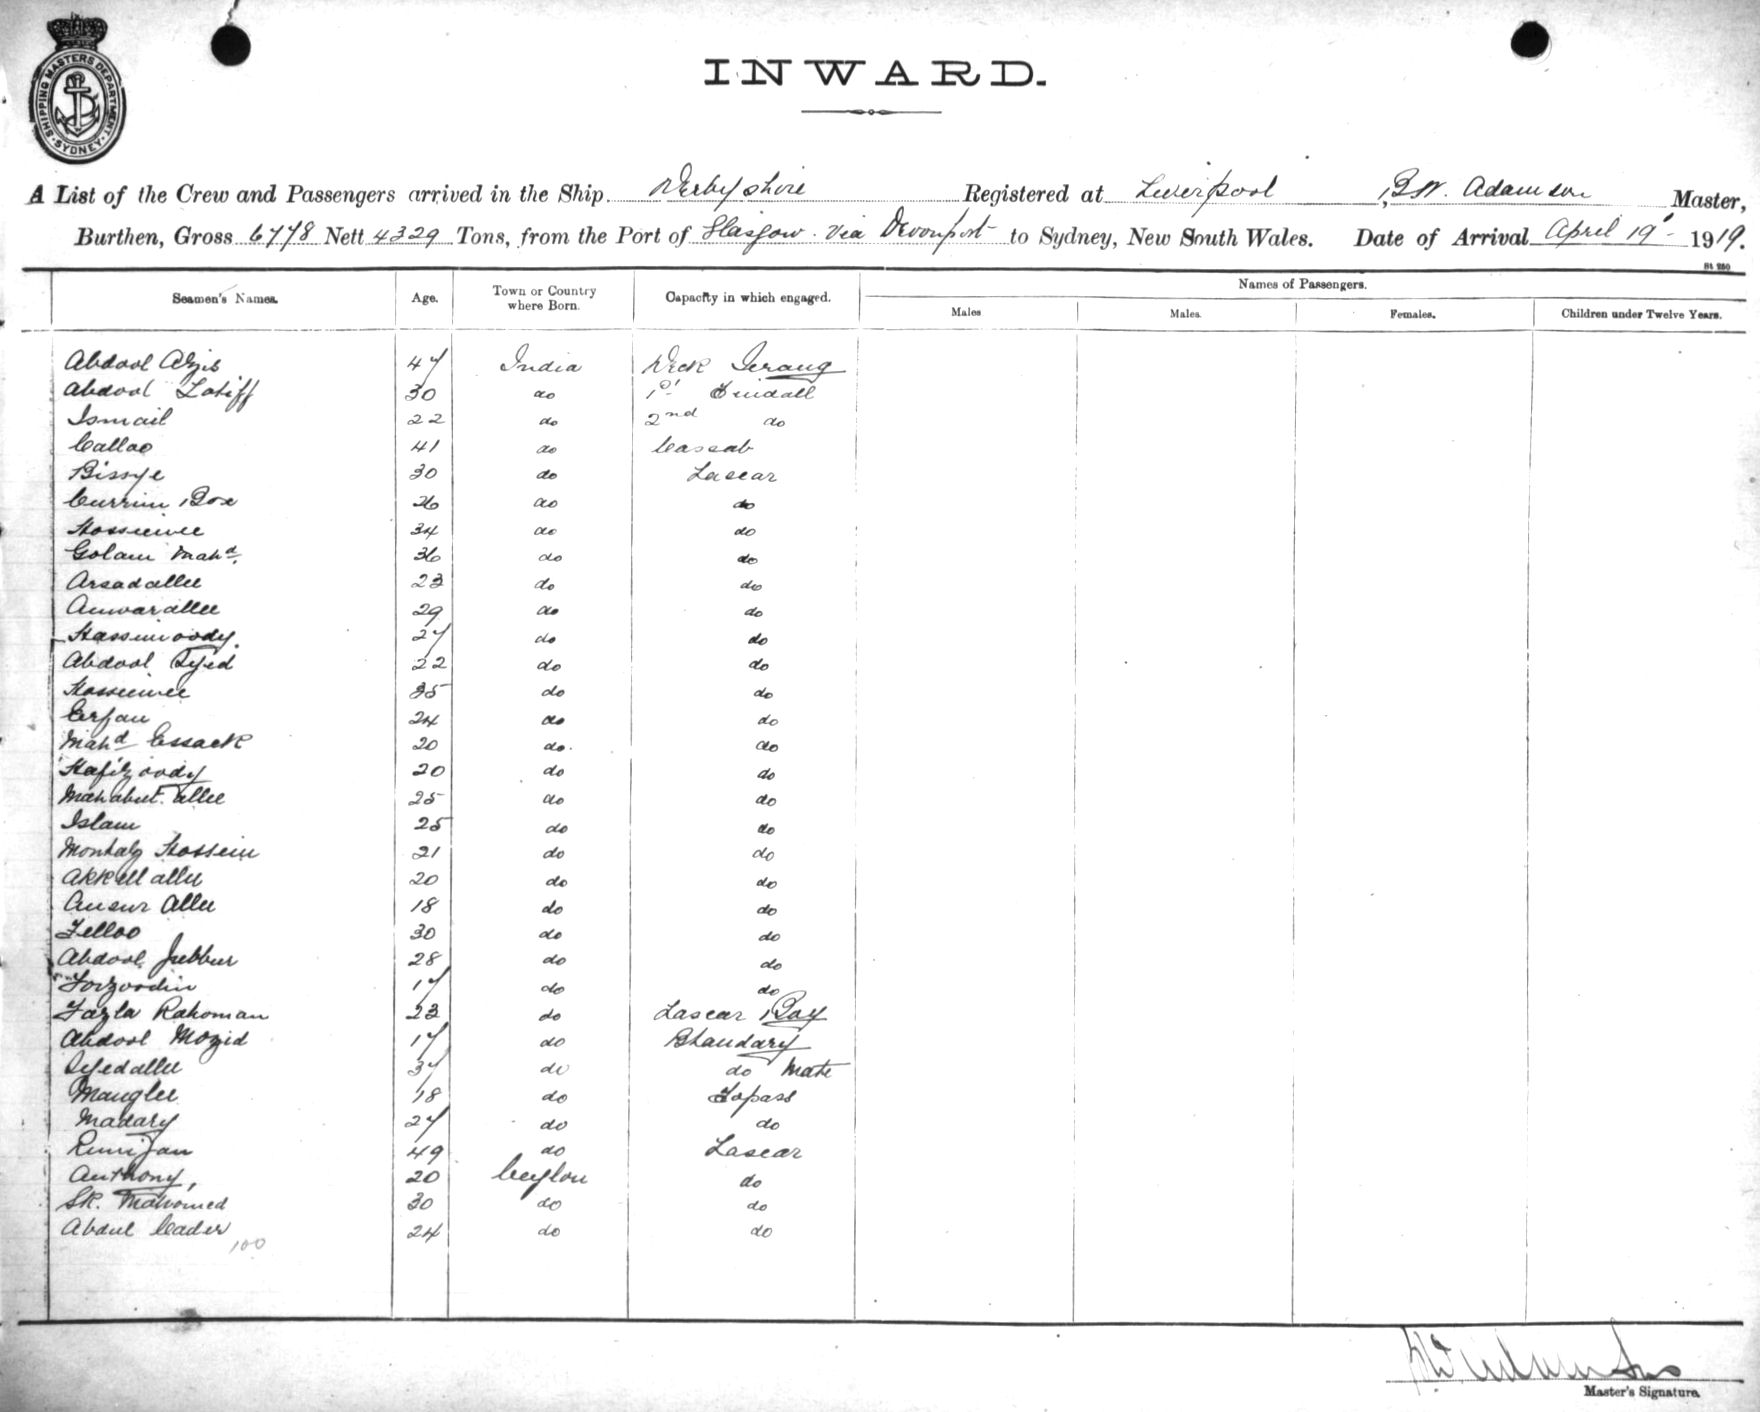 SHIPPING MASTERS DEPARTMENT SYDNEY
INWARD.
A List of the Crew and Passengers arrived in the Ship Derbyshire Registered at Liverpool, B.W. Adamson Master,
Burthen, Gross 6778 Nett 4329 Tons, from the Port of Glasgow via Devonport to Sydney, New South Wales. Date of Arrival April 19 1919.
St 250
Seamen's Names. Age. Town or Country where Born. Capacity in which engaged. Names of Passengers.
Males Males. Females. Children under Twelve Years.
Abdool Azis 47 India Deck Serang
Abdool Latiff 30 do 1st Tindall
Ismail 22 do 2nd do
Calloo 41 do Cassab
Bissye 30 do Lascar
Currim Box 26 do do
Hosseinee 34 do do
Golam Mahd. 36 do do
Arsadallee 23 do do
Anwarallee 29 do do
Hassimoody. 27 do do
Abdool Syed 22 do do
Hosseinee 35 do do
Erfan 24 do do
Mahd Essack 20 do. do
Hafizoody 20 do do
Mahabut allee 25 do do
Islam 25 do do
Montaz Hossein 21 do do
Akkel allee 20 do do
Ansur Allee 18 do do
Felloo 30 do do
Abdool Jubbur 28 do do
Foizoodin 17 do do
Fazla Rahoman 23 do Lascar Boy
Abdool Mozid 17 do Bhandary
Syedallee 37 do do Mate
Manglee 18 do Topass
Madary 27 do do
Rumijan 49 do Lascar
Anthony, 20 Ceylon do
SK. Mahomed 30 do do
Abdul Cader 24 do do
100
Master's Signature.